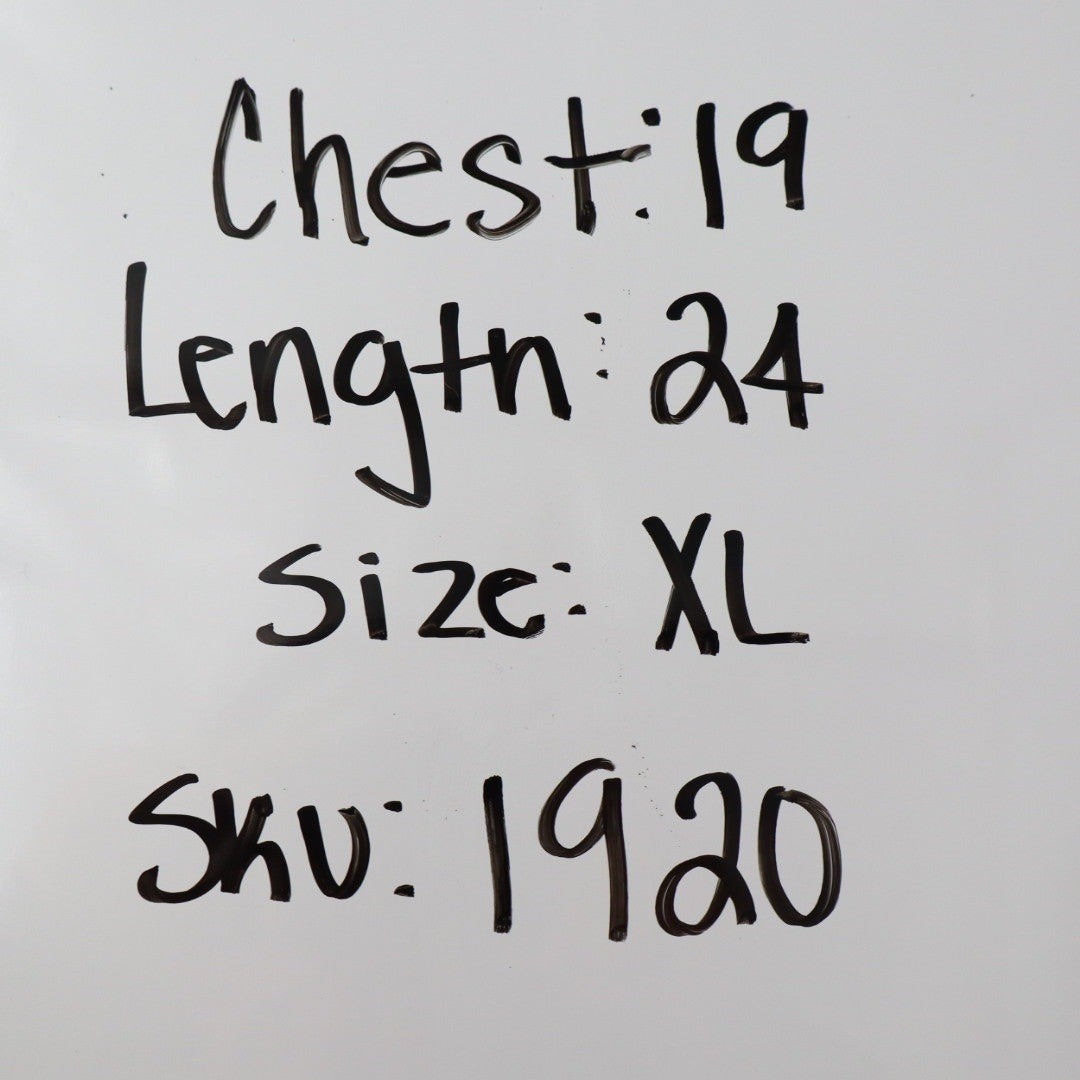 Chest: 19
Length: 24
Size: XL
SKU: 1920